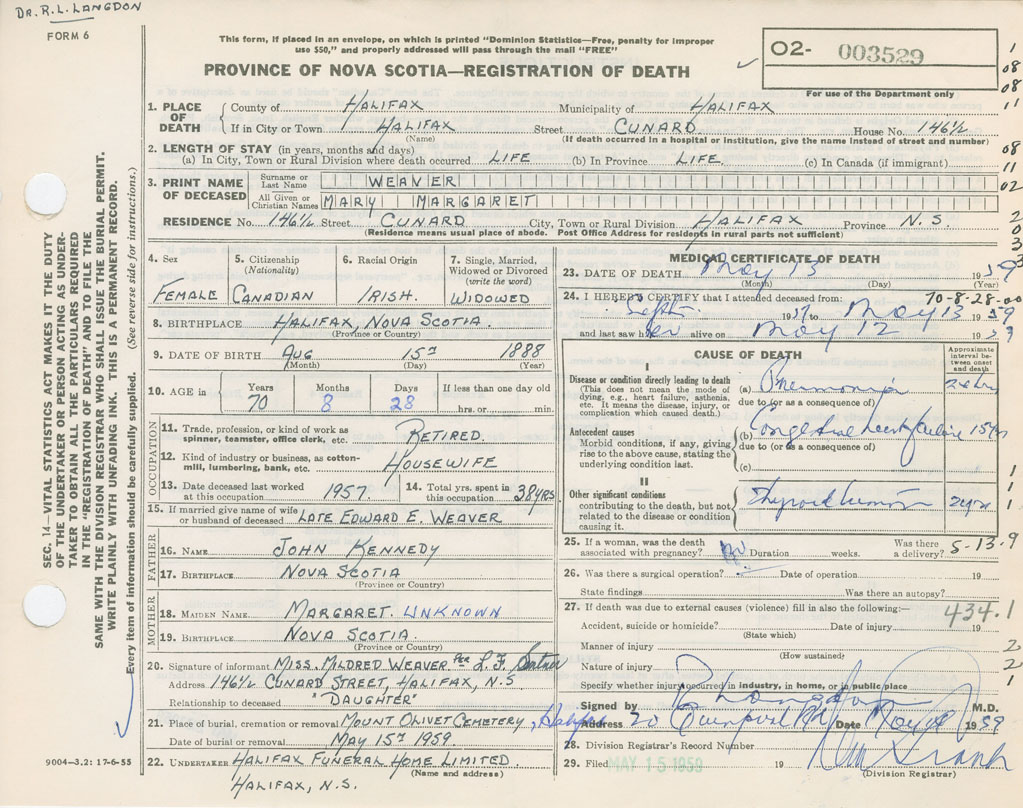 DR. R. L. LANGDON
FORM 6
This form, if placed in an envelope, on which is printed "Dominion Statistics—Free, penalty for improper
use $50," and properly addressed will pass through the mail "FREE"
PROVINCE OF NOVA SCOTIA—REGISTRATION OF DEATH
02- 003529
For use of the Department only
1. PLACE OF DEATH
County of HALIFAX Municipality of HALIFAX
If in City or Town HALIFAX Street CUNARD House No. 146½
(Name) (If death occurred in a hospital or institution, give the name instead of street and number)
2. LENGTH OF STAY (in years, months and days)
(a) In City, Town or Rural Division where death occurred LIFE (b) In Province LIFE. (c) In Canada (if immigrant)
3. PRINT NAME OF DECEASED
Surname or Last Name WEAVER
All Given or Christian Names MARY MARGARET
RESIDENCE No. 146½ Street CUNARD City, Town or Rural Division HALIFAX Province N.S.
(Residence means usual place of abode. Post Office Address for residents in rural parts not sufficient)
4. Sex
FEMALE
5. Citizenship (Nationality)
CANADIAN
6. Racial Origin
IRISH.
7. Single, Married, Widowed or Divorced (write the word)
WIDOWED
8. BIRTHPLACE HALIFAX, NOVA SCOTIA.
(Province or Country)
9. DATE OF BIRTH AUG 15TH 1888
(Month) (Day) (Year)
10. AGE in
Years Months Days If less than one day old
70 8 28 hrs. or min.
OCCUPATION
11. Trade, profession, or kind of work as spinner, teamster, office clerk, etc. RETIRED.
12. Kind of industry or business, as cotton-mill, lumbering, bank, etc. HOUSEWIFE
13. Date deceased last worked at this occupation 1957. 14. Total yrs. spent in this occupation 38 YRS
15. If married give name of wife or husband of deceased LATE EDWARD E. WEAVER
FATHER
16. NAME JOHN KENNEDY
17. BIRTHPLACE NOVA SCOTIA
(Province or Country)
MOTHER
18. MAIDEN NAME MARGARET. UNKNOWN
19. BIRTHPLACE NOVA SCOTIA.
(Province or Country)
20. Signature of informant MISS. MILDRED WEAVER PER L. F.
Address 146½ CUNARD STREET, HALIFAX, N.S
Relationship to deceased "DAUGHTER"
21. Place of burial, cremation or removal MOUNT OLIVET CEMETERY, Halifax
Date of burial or removal MAY 15TH 1959.
22. UNDERTAKER HALIFAX FUNERAL HOME LIMITED.
(Name and address)
HALIFAX, N.S.
MEDICAL CERTIFICATE OF DEATH
23. DATE OF DEATH May 13 1959
(Month) (Day) (Year)
70-8-28-00
24. I HEREBY CERTIFY that I attended deceased from:
Sept. 1957 to May 13 1959
and last saw her alive on May 12 1959
CAUSE OF DEATH
Approximate interval between onset and death
I
Disease or condition directly leading to death
(This does not mean the mode of dying, e.g., heart failure, asthenia, etc. It means the disease, injury, or complication which caused death.)
(a) Pneumonia 24 hrs
due to (or as a consequence of)
Antecedent causes
Morbid conditions, if any, giving rise to the above cause, stating the underlying condition last.
(b) Congestive heart failure 15 yrs
due to (or as a consequence of)
(c)
II
Other significant conditions
contributing to the death, but not related to the disease or condition causing it.
Thyroid tumor 2 yrs
25. If a woman, was the death associated with pregnancy? No Duration weeks. Was there a delivery?
5-13-9
26. Was there a surgical operation? Date of operation 19
State findings Was there an autopsy?
27. If death was due to external causes (violence) fill in also the following:—
434.1
Accident, suicide or homicide? Date of injury 19
(State which)
Manner of injury
(How sustained)
Nature of injury
Specify whether injury occurred in industry, in home, or in public place
Signed by R Langdon M.D.
Address 20 Date May 1959
28. Division Registrar's Record Number
29. Filed MAY 15 1959 19
(Division Registrar)
SEC. 14 VITAL STATISTICS ACT MAKES IT THE DUTY
OF THE UNDERTAKER OR PERSON ACTING AS UNDER-
TAKER TO OBTAIN ALL THE PARTICULARS REQUIRED
IN THE "REGISTRATION OF DEATH" AND TO FILE THE
SAME WITH THE DIVISION REGISTRAR WHO SHALL ISSUE THE BURIAL PERMIT.
WRITE PLAINLY WITH UNFADING INK. THIS IS A PERMANENT RECORD.
Every item of information should be carefully supplied. (See reverse side for instructions.)
9004—3.2: 17-6-55
1
08
08
11
08
11
02
2
0
3
3
1
1
1
1
2
2
1